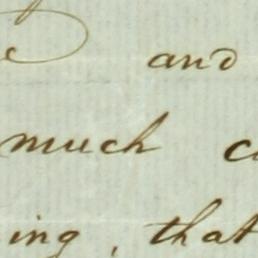 and
much
ing, that